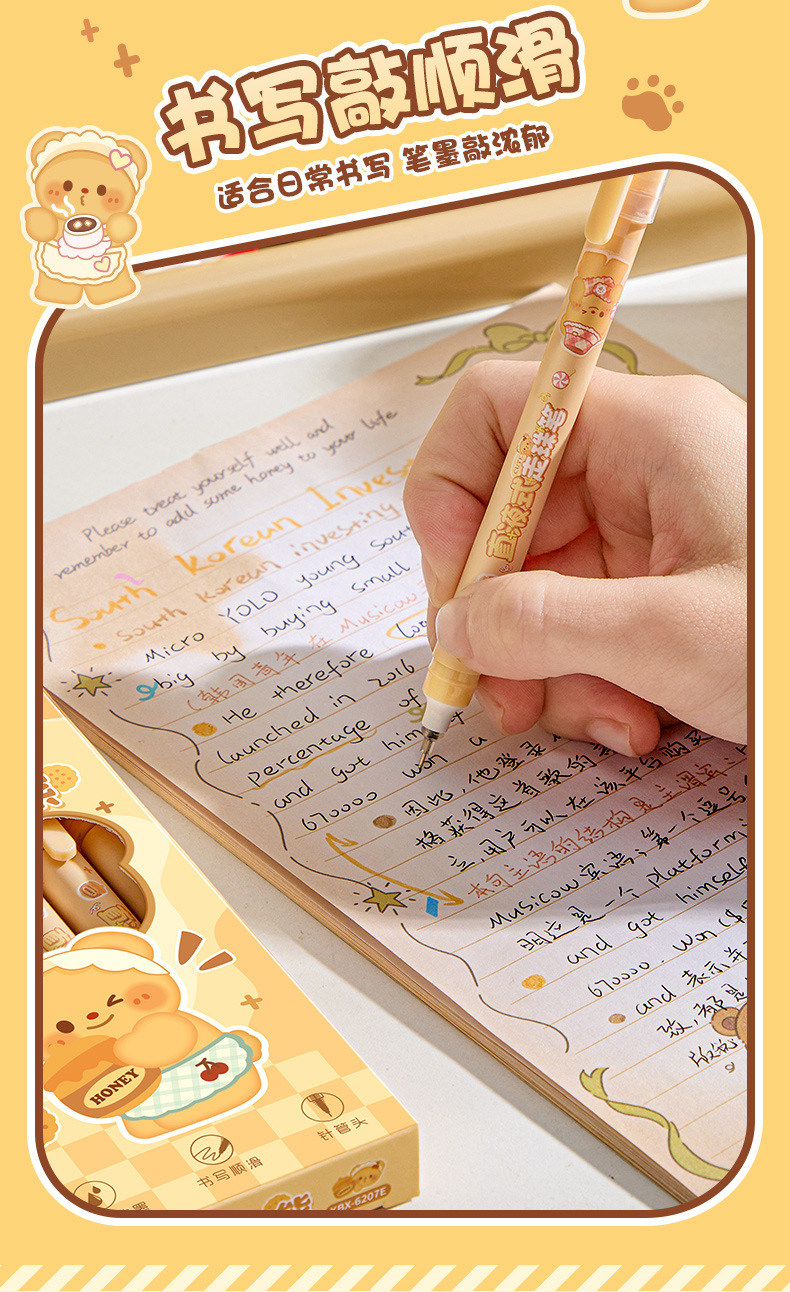 书写敲顺滑
适合日常书写 笔墨敲浓郁
Please treat yourself well and
remember to add some honey to your life
South Korean Inves
South Korean investing
Micro YOLO young sou
big by buying small
(韩国青年在 Musicow
He therefore
launched in 2016
percentage of
and got him
670000 won a
因此,他登录
格获得这首歌的
三,用户可以在该平台购买
本句主语的结构是主谓宾
Musicow宾语,第一个逗号
明这是一个 Platform
and got himself
670000. Won ($
and 表示并
致,都是
直液式走珠笔
HONEY
针管头
书写顺滑
墨
熊
KBX-6207E